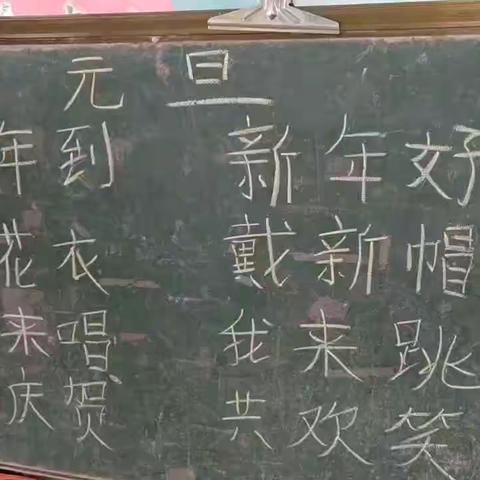 元旦
年到 新年好
花衣 戴新帽
来唱 我来跳
庆贺 共欢笑